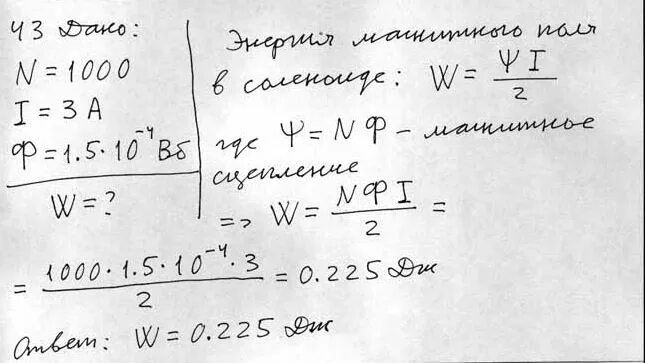 43 Дано:
N = 1000
I = 3 А
Ф = 1.5 · 10⁻⁴ Вб
W = ?
Энергия магнитного поля
в соленоиде: W = ΨI/2
где Ψ = NФ – магнитное
сцепление
=> W = NФI/2 =
= 1000 · 1.5 · 10⁻⁴ · 3/2 = 0.225 Дж
Ответ: W = 0.225 Дж